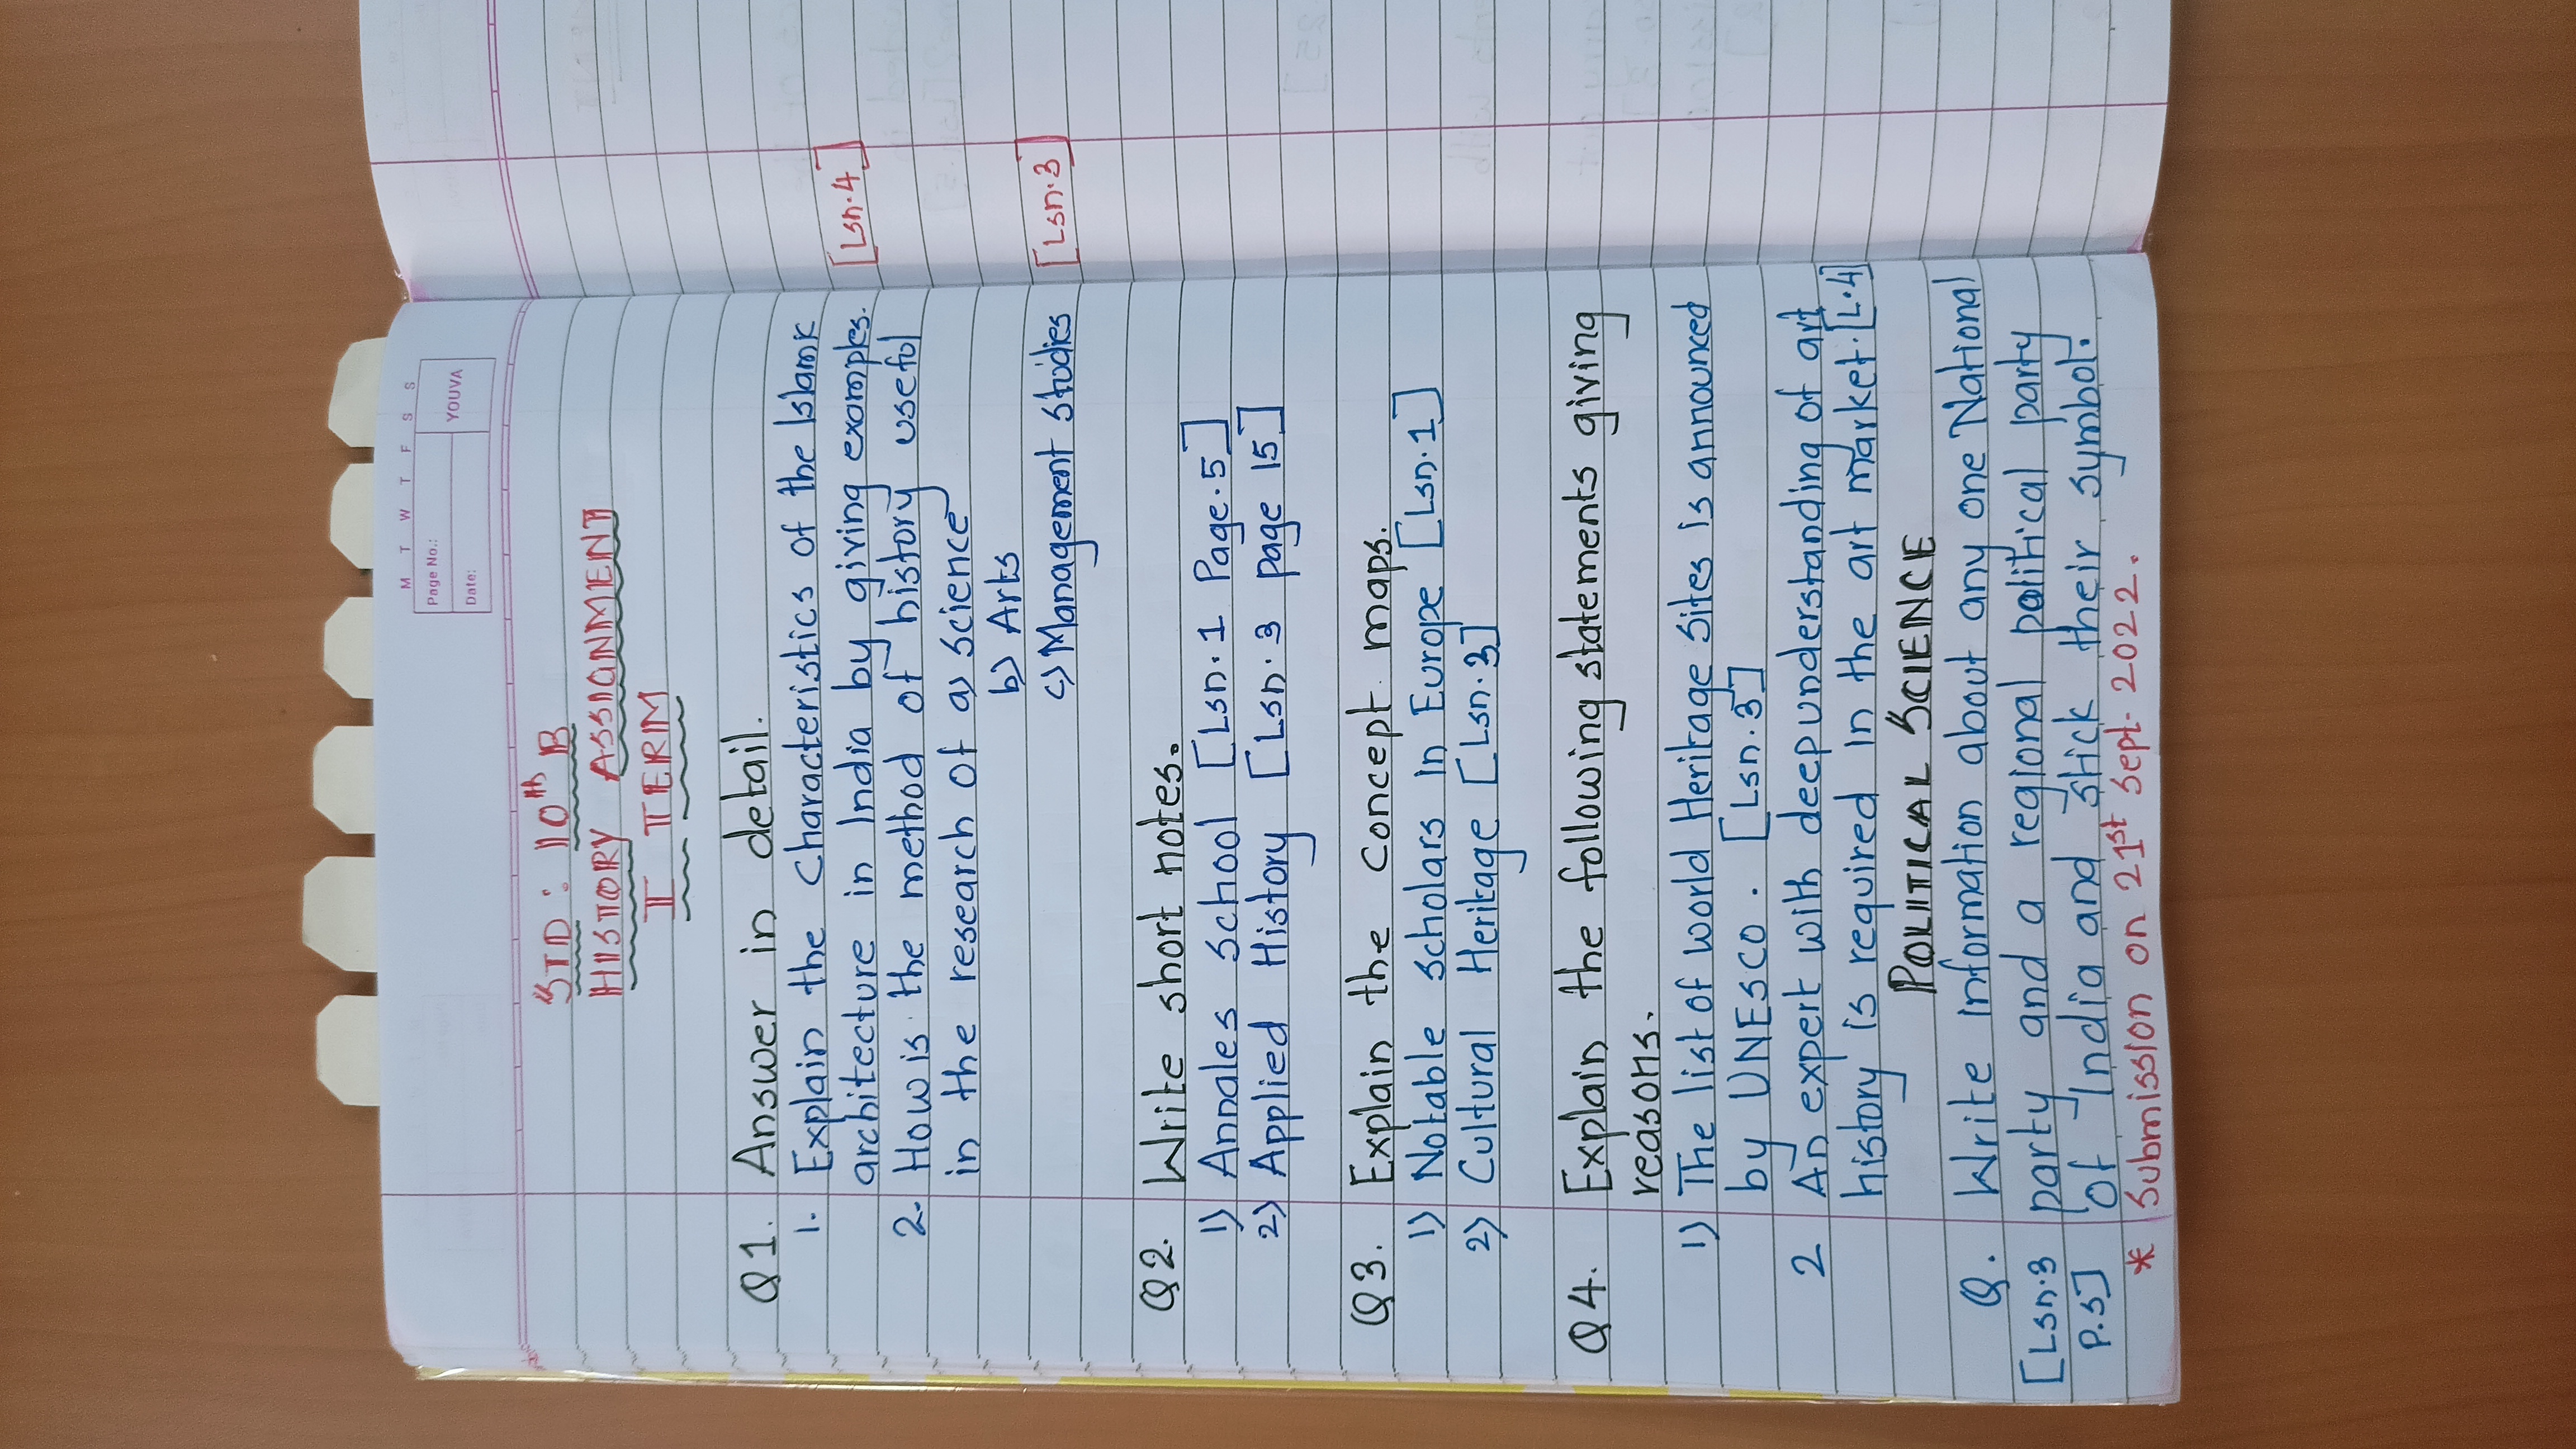 M T W T F S S
Page No.:
Date:
YOUVA
STD: 10th B
HISTORY ASSIGNMENT
I TERM
Q1. Answer in detail.
1. Explain the characteristics of the Islamic
architecture in India by giving examples. [Lsn.4]
2. How is the method of history useful
in the research of a) Science
b) Arts
c) Management studies [Lsn.3]
Q2. Write short notes.
1) Annales School [Lsn.1 Page.5]
2) Applied History [Lsn.3 page 15]
Q3. Explain the concept maps.
1) Notable scholars In Europe [Lsn.1]
2) Cultural Heritage [Lsn.3]
Q4. Explain the following statements giving
reasons.
1) The list of world Heritage Sites is announced
by UNESCO. [Lsn.3]
2 An expert with deep understanding of art
history is required in the art market. [L.4]
POLITICAL SCIENCE
Q. Write Information about any one National
[Lsn.3 party and a regional political party
P.S] of India and stick their symbol.
* Submission on 21st Sept. 2022.